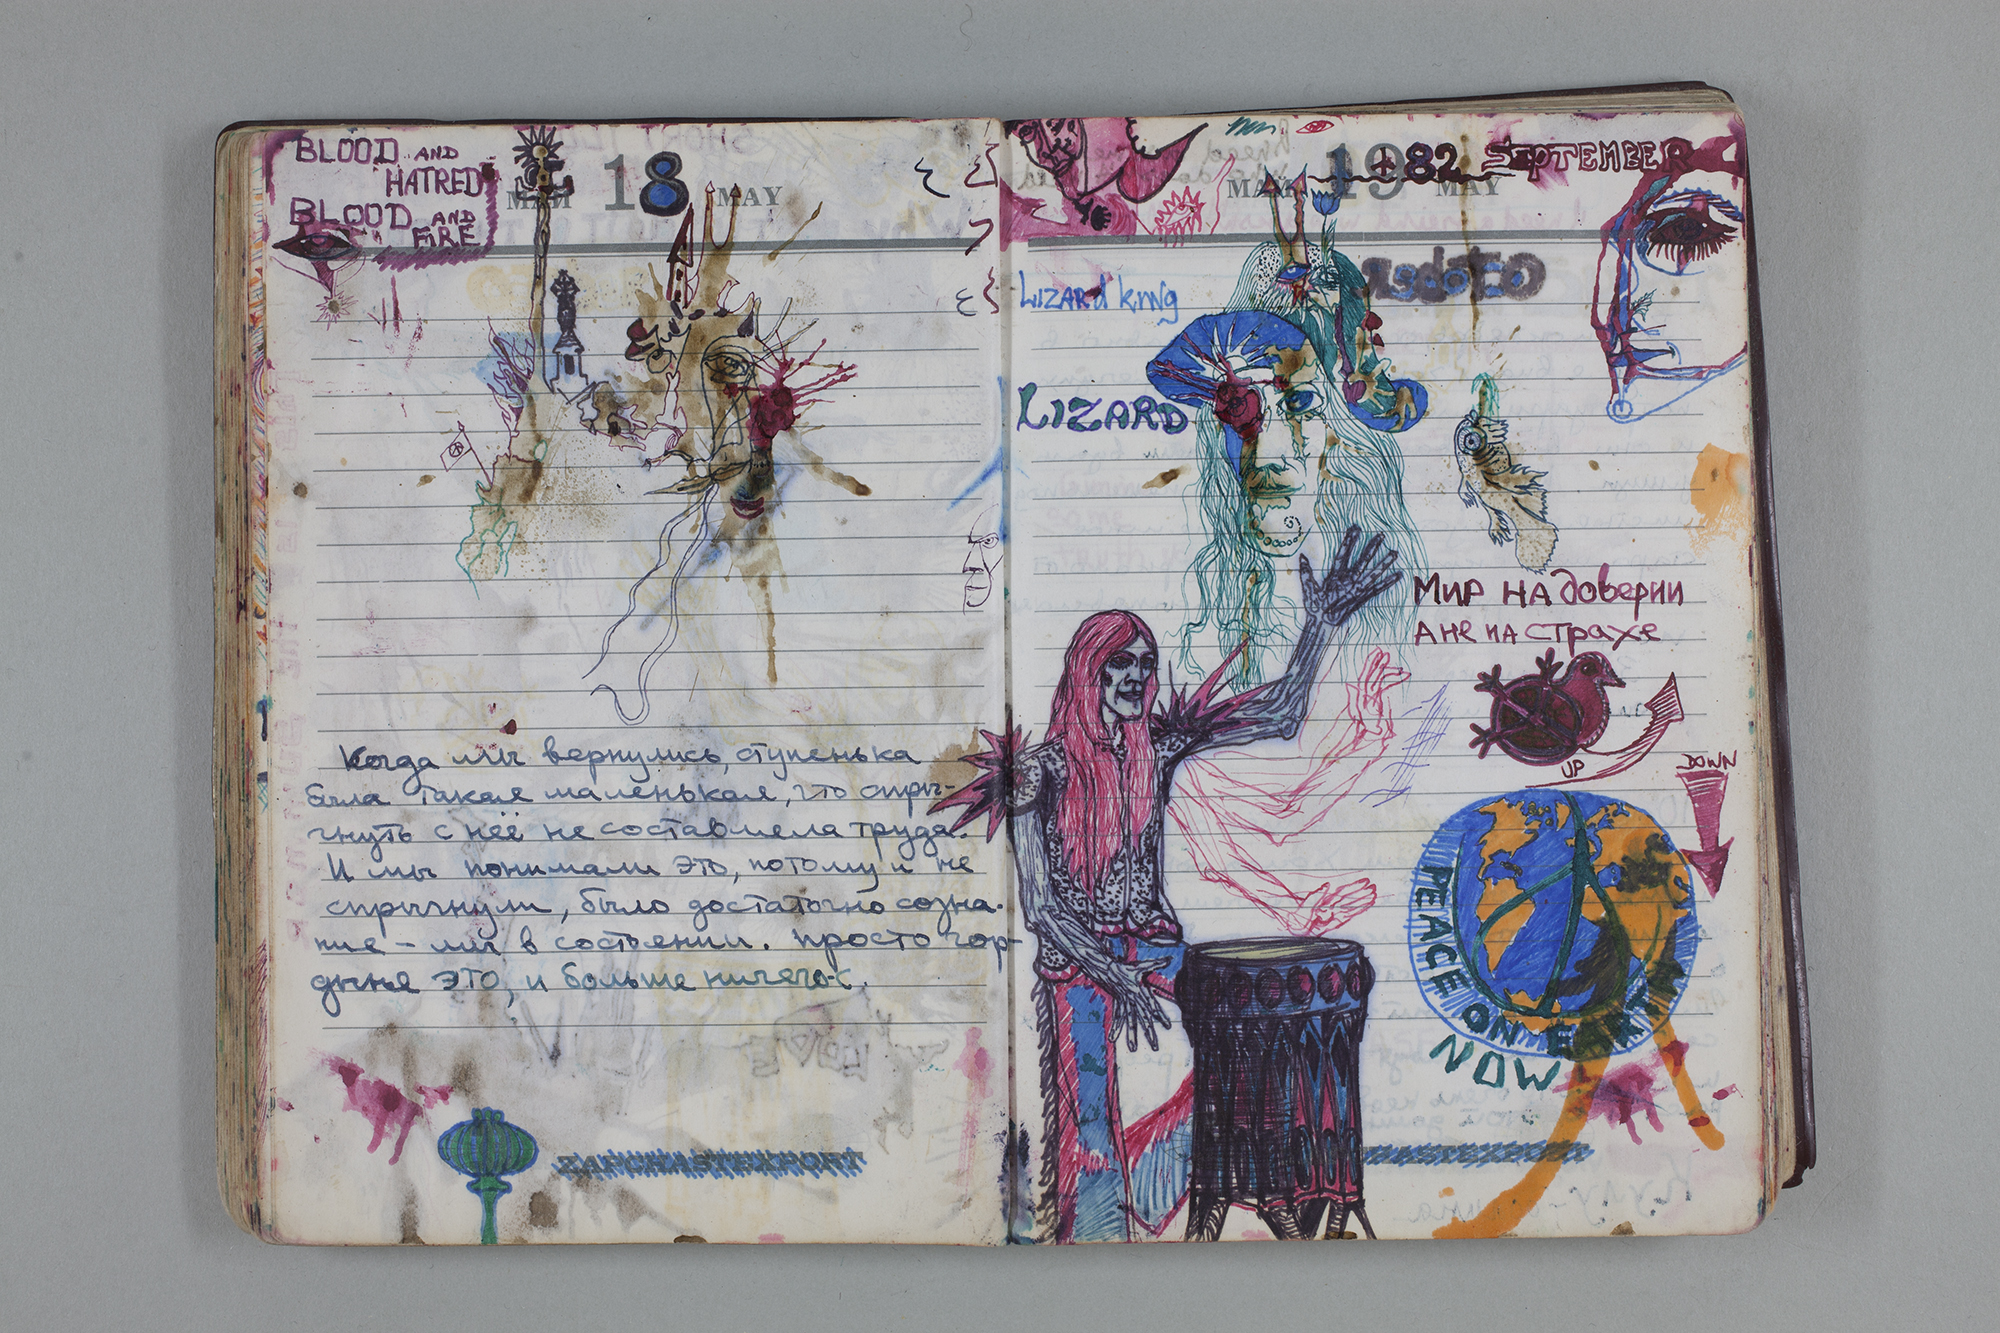 BLOOD AND
HATRED
BLOOD AND
FIRE
МАЙ 18 MAY
Когда мы вернулись, ступенька
была такая маленькая, что спры-
гнуть с неё не составляла труда.
И мы понимали это, потому и не
спрыгнули, было достаточно созна-
ние – мы в состоянии. Просто гор-
дынья это, и больше ничего-с.
ZAPCHASTEXPORT
МАЙ 19 MAY
82 SEPTEMBER
OCTOBER
LIZARD KING
LIZARD
Мир на доверии
а не на страхе
UP
DOWN
PEACE ON EARTH
NOW